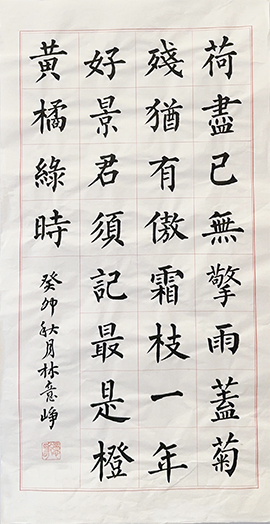 荷盡已無擎雨蓋菊
殘猶有傲霜枝一年
好景君須記最是橙
黃橘綠時
癸卯秋月林意崢